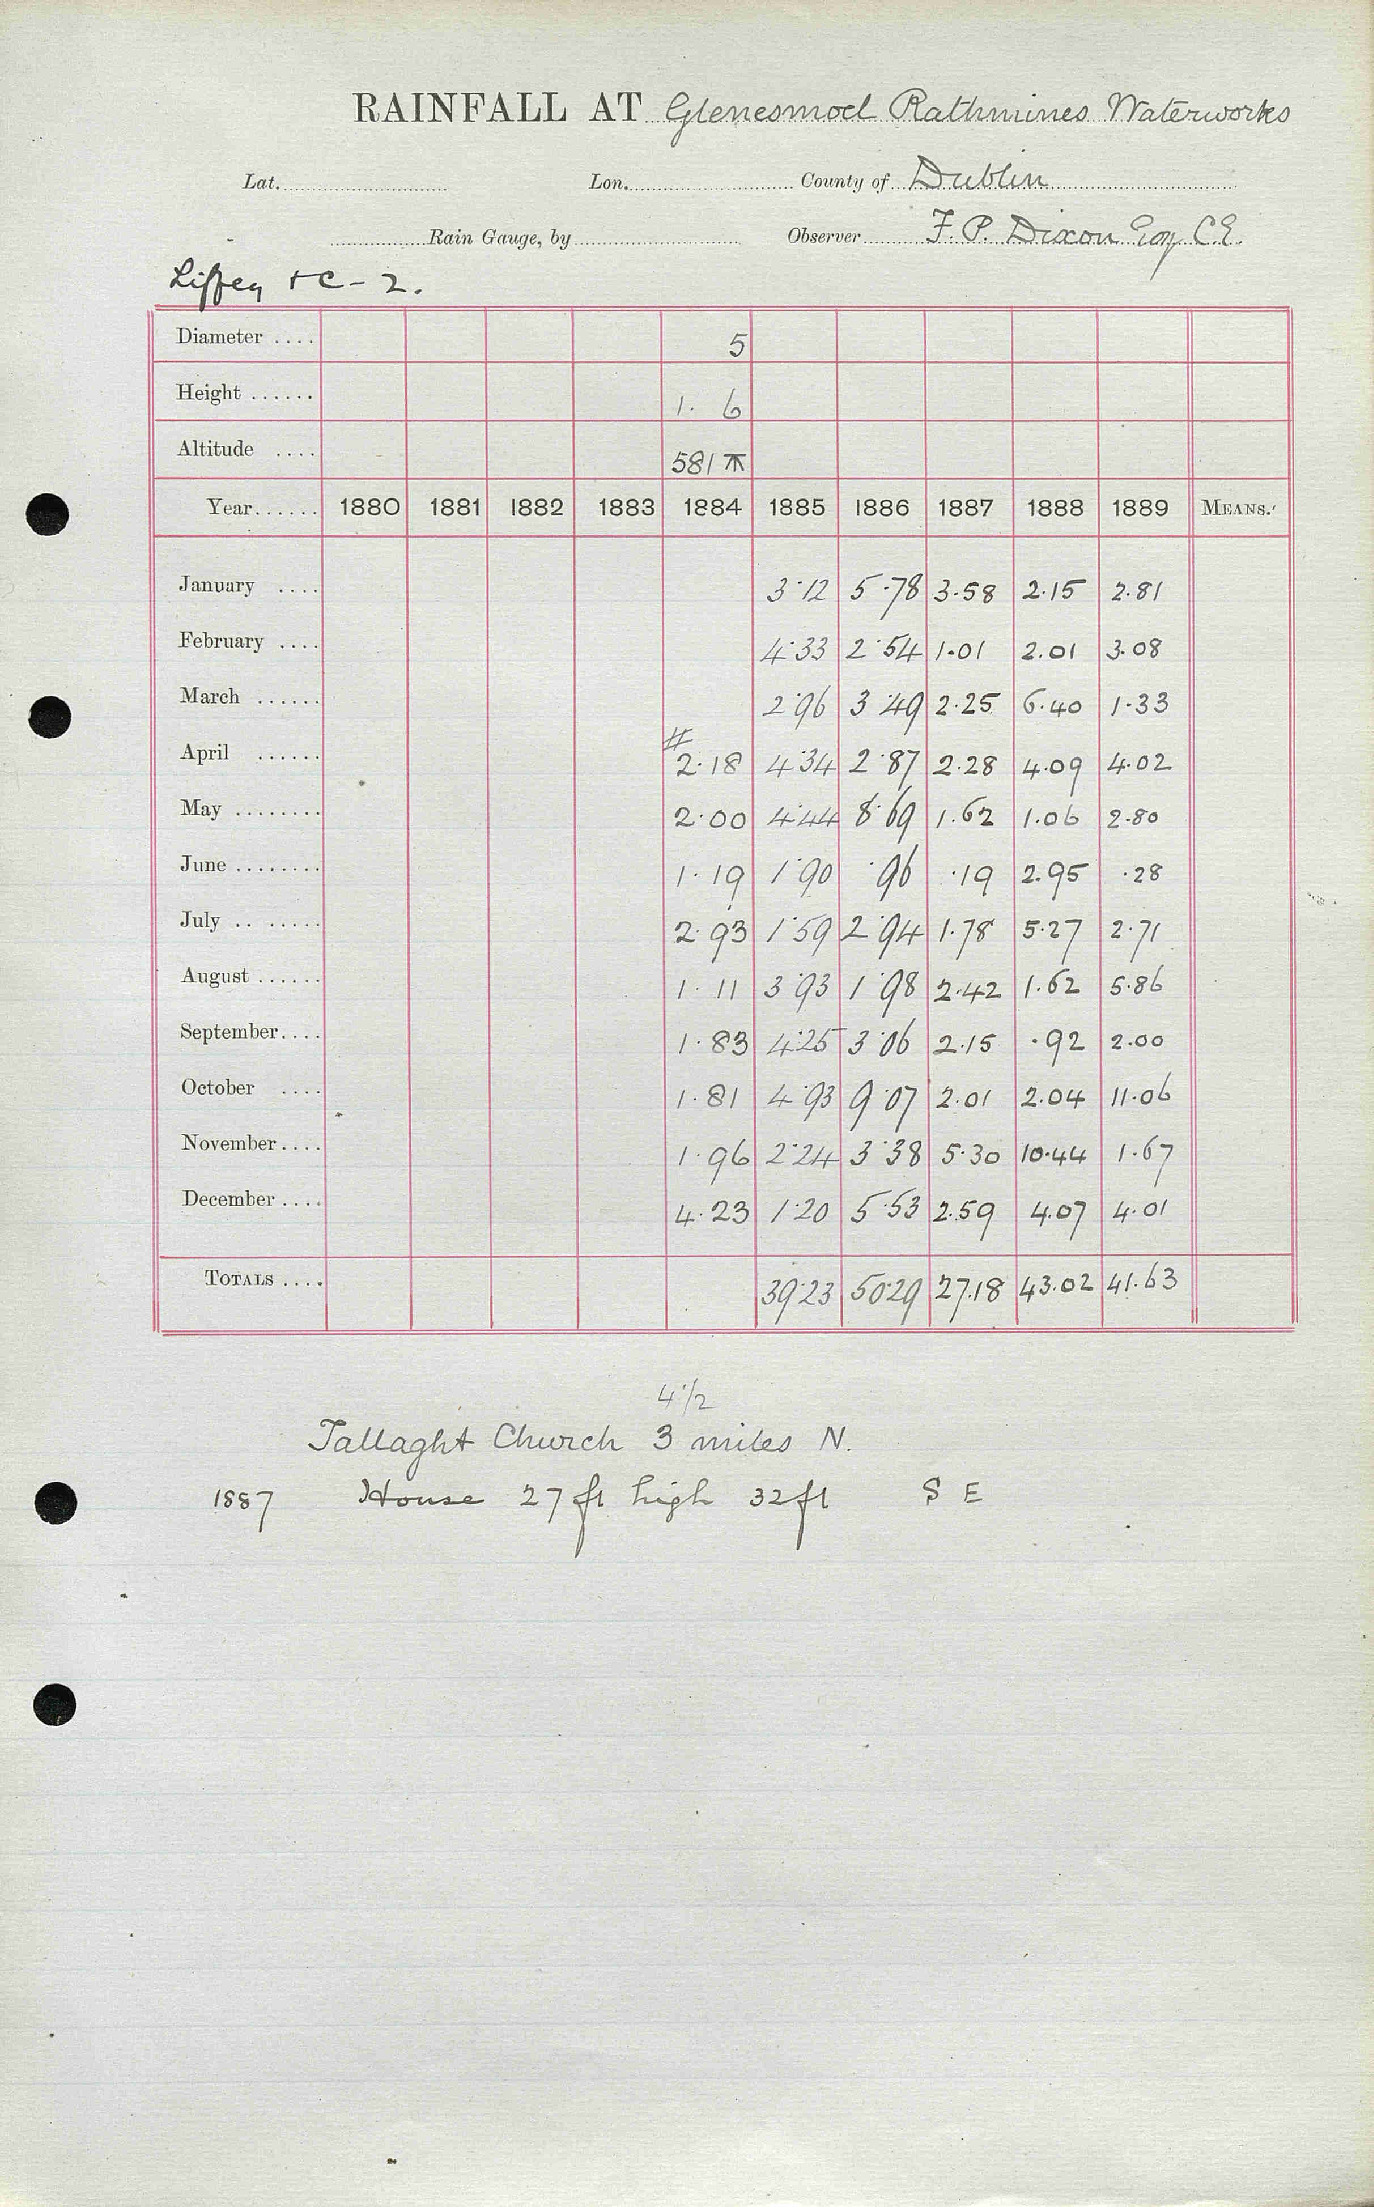 RAINFALL AT Glenesmoel Rathmines Waterworks
Lat. Lon. County of Dublin
Rain Gauge, by Observer F. P. Dixon Esq C.E.
Liffey + C - 2.
Diameter .... 5
Height ...... 1. 6
Altitude .... 581
Year...... 1880 1881 1882 1883 1884 1885 1886 1887 1888 1889 MEANS.
January .... 3·12 5·78 3·58 2·15 2·81
February .... 4·33 2·54 1·01 2.01 3·08
March ...... 2·96 3·49 2·25 6·40 1·33
#
April ...... 2·18 4·34 2·87 2·28 4·09 4·02
May ........ 2·00 4·44 8·69 1·62 1·06 2·80
June ........ 1·19 1·90 ·96 ·19 2.95 ·28
July .. ..... 2·93 1·59 2·94 1·78 5·27 2·71
August ...... 1·11 3·93 1·98 2·42 1·62 5·86
September.... 1·83 4·25 3·06 2·15 ·92 2·00
October .... 1·81 4·93 9·07 2·01 2·04 11·06
November.... 1·96 2·24 3·38 5·30 10·44 1·67
December .... 4·23 1·20 5·53 2.59 4.07 4·01
TOTALS .... 39·23 50·29 27.18 43.02 41.63
4 1/2
Tallaght Church 3 miles N.
1887 House 27 ft high 32 ft S E